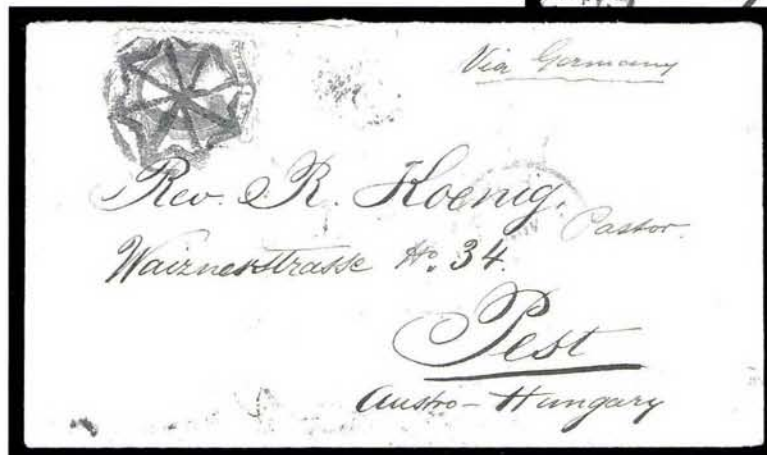 Via Germany
Rev. R. Koenig.
Pastor.
Waiznerstrasse No. 34.
Pest
Austro-Hungary